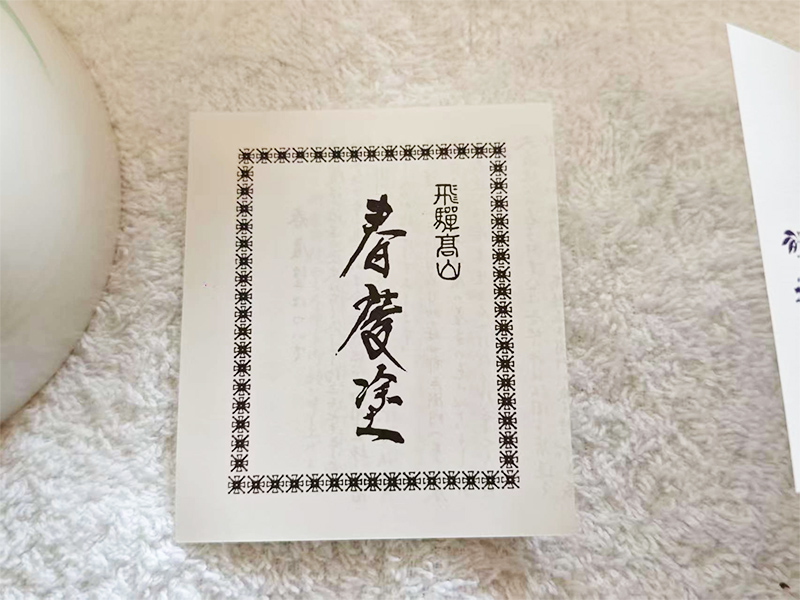 飛騨高山
春慶塗